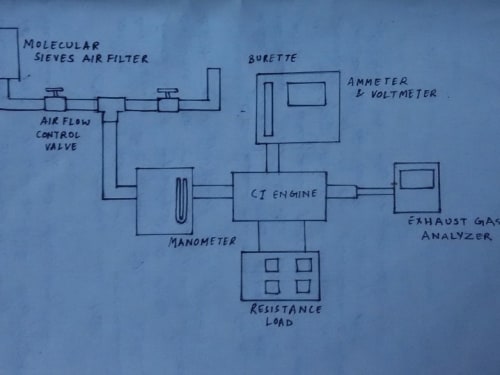 MOLECULAR
SIEVES AIR FILTER
BURETTE
AMMETER
& VOLTMETER
AIR FLOW
CONTROL
VALVE
CI ENGINE
MANOMETER
EXHAUST GAS
ANALYZER
RESISTANCE
LOAD